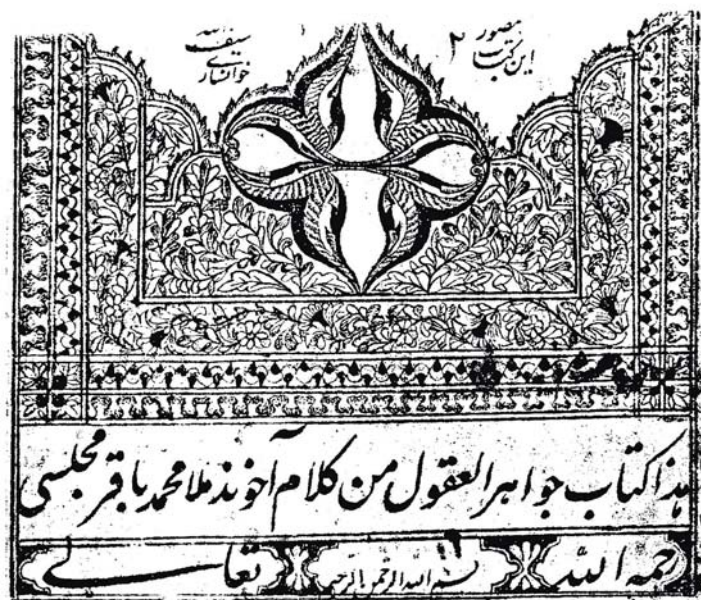 مصور
این کتاب
سیف الله
خوانساری
هذا کتاب جواهر العقول من کلام آخوند ملا محمد باقر مجلسی
رحمه الله بسم الله الرحمن الرحیم تعالی